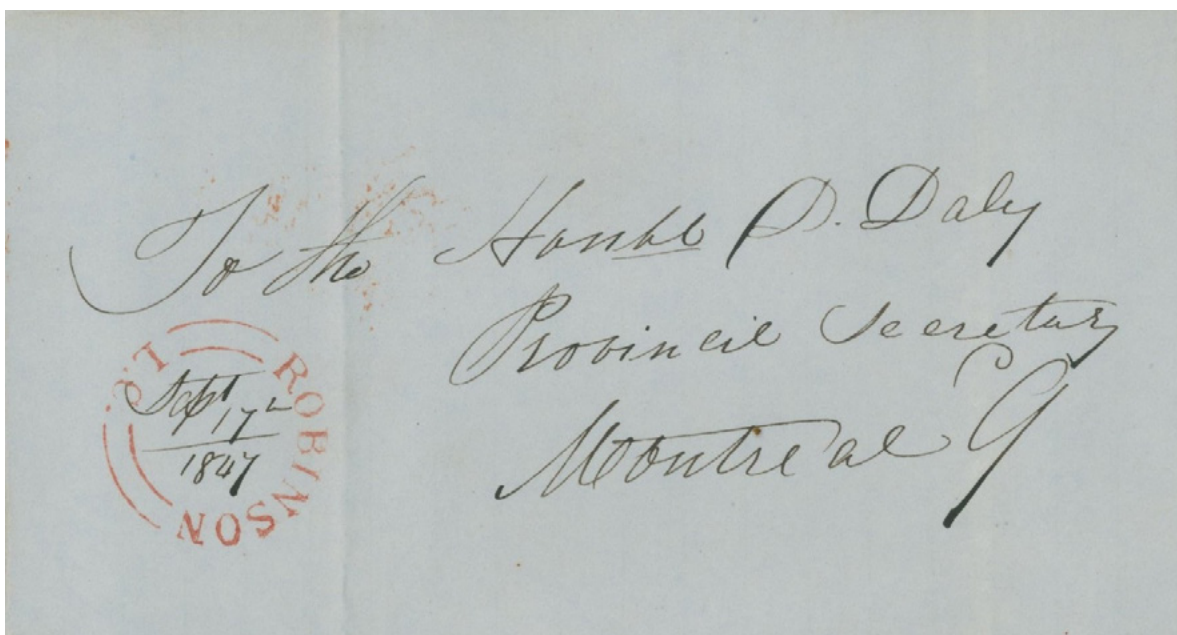 To the Honble D. Daly
Provincil Secretary
Montreal
PT ROBINSON
Sept 17
1847